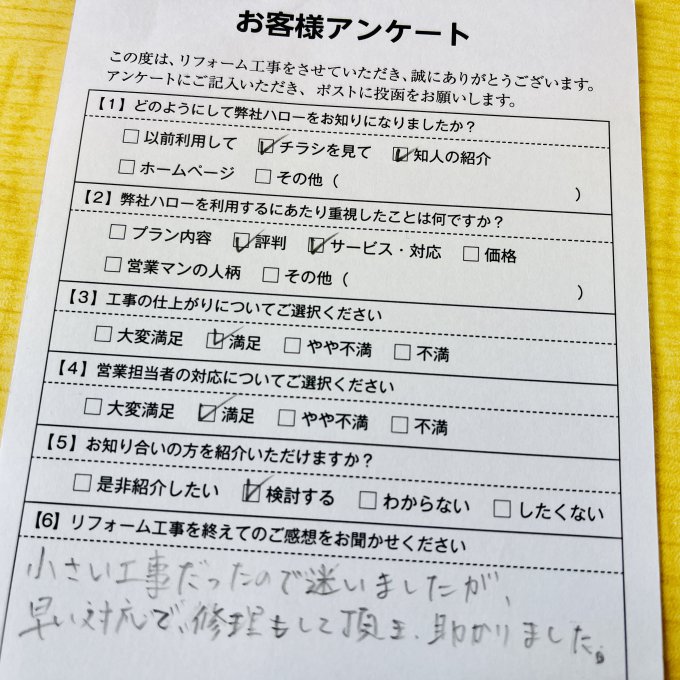 お客様アンケート
この度は、リフォーム工事をさせていただき、誠にありがとうございます。
アンケートにご記入いただき、ポストに投函をお願いします。
【1】どのようにして弊社ハローをお知りになりましたか？
□以前利用して ☑チラシを見て ☑知人の紹介
□ホームページ □その他（ ）
【2】弊社ハローを利用するにあたり重視したことは何ですか？
□プラン内容 ☑評判 ☑サービス・対応 □価格
□営業マンの人柄 □その他（ ）
【3】工事の仕上がりについてご選択ください
□大変満足 ☑満足 □やや不満 □不満
【4】営業担当者の対応についてご選択ください
□大変満足 ☑満足 □やや不満 □不満
【5】お知り合いの方を紹介いただけますか？
□是非紹介したい ☑検討する □わからない □したくない
【6】リフォーム工事を終えてのご感想をお聞かせください
小さい工事だったので迷いましたが、
早い対応で、修理もして頂き、助かりました。